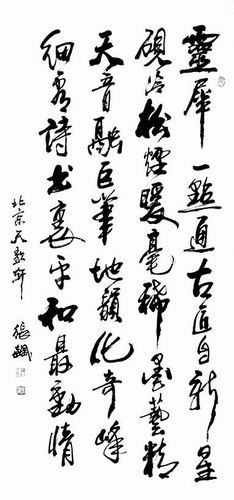 靈犀一點通古匠自新星
硯冷松煙暖毫稀墨藝精
天音融巨筆地韻化奇峰
細看詩書裏平和最動情
北京天歌軒 張